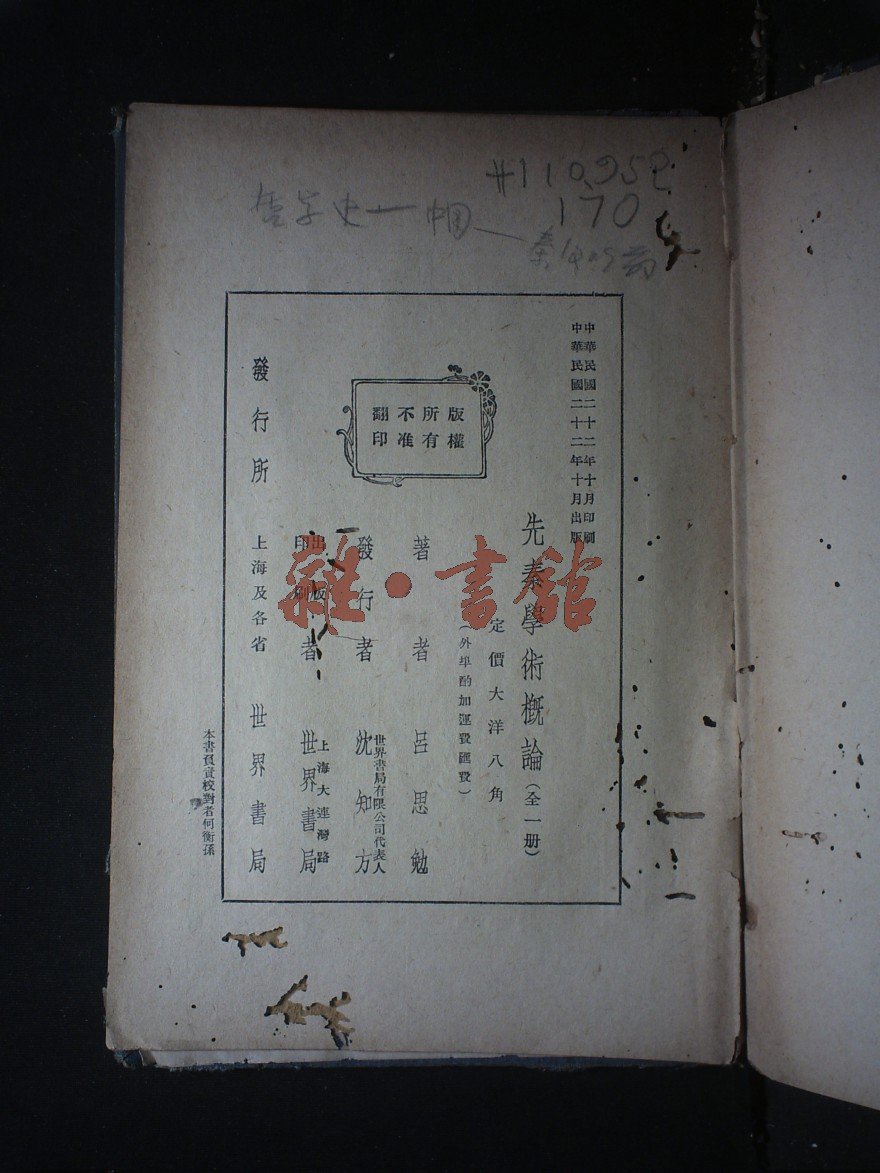 #110.952
170
史一中国
中華民國二十二年十月印刷
中華民國二十二年十月出版
先秦學術概論（全一册）
定價大洋八角
（外埠酌加運費匯費）
版權
所有
不准
翻印
著者 呂思勉
發行者 世界書局有限公司代表人 沈知方
出版印刷者 上海大連灣路 世界書局
發行所 上海及各省 世界書局
本書負責校對者何衡孫
雜·書館